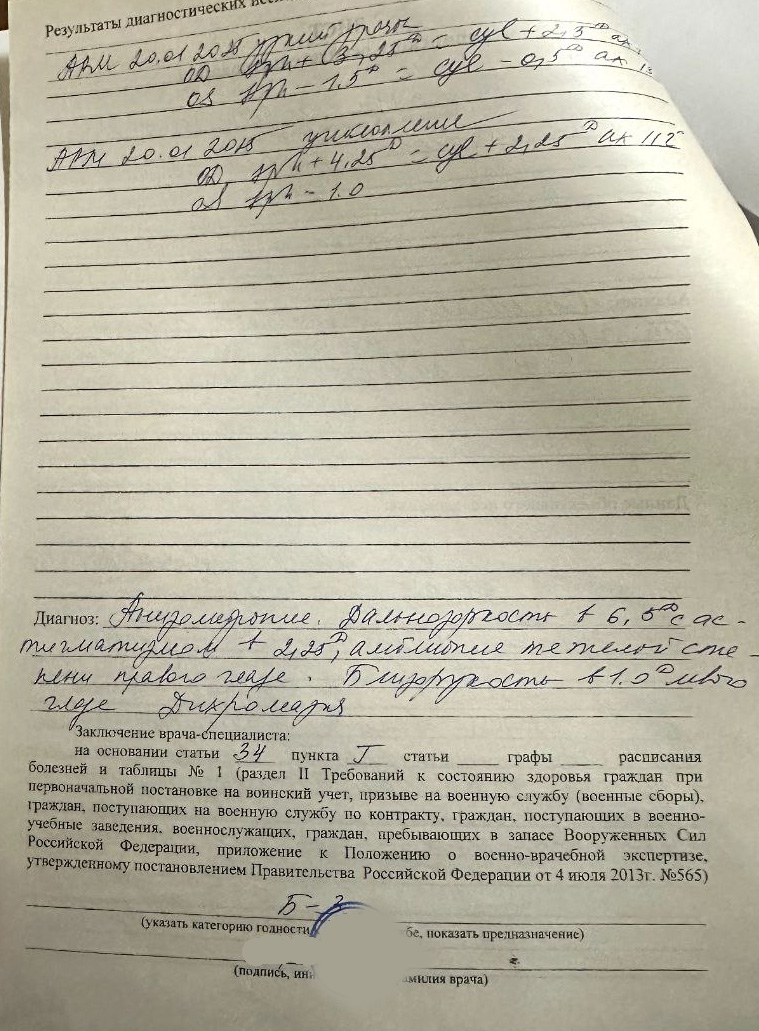 Результаты диагностических
АРМ 20.01 2015 узкий зрачок
OD sph + 3,25ᴰ = cyl + 2,5ᴰ ax
OS sph - 1.5ᴰ = cyl - 0,5ᴰ ax
АРМ 20.01 2015 циклоплегия
OD sph + 4,25ᴰ = cyl + 2,25ᴰ ax 112
OS sph - 1.0
Диагноз: Анизометропие. Дальнозоркость в 6,5ᴰ с ас-
тигматизмом в 2,25ᴰ, амблиопие тяжелой сте-
пени правого глаза. Близорукость в 1.0ᴰ левого
глаза Дихромазия
Заключение врача-специалиста:
на основании статьи 34 пункта Г статьи ____ графы ____ расписания
болезней и таблицы № 1 (раздел II Требований к состоянию здоровья граждан при
первоначальной постановке на воинский учет, призыве на военную службу (военные сборы),
граждан, поступающих на военную службу по контракту, граждан, поступающих в военно-
учебные заведения, военнослужащих, граждан, пребывающих в запасе Вооруженных Сил
Российской Федерации, приложение к Положению о военно-врачебной экспертизе,
утвержденному постановлением Правительства Российской Федерации от 4 июля 2013г. №565)
Б-3
(указать категорию годности бе, показать предназначение)
(подпись, ин милия врача)